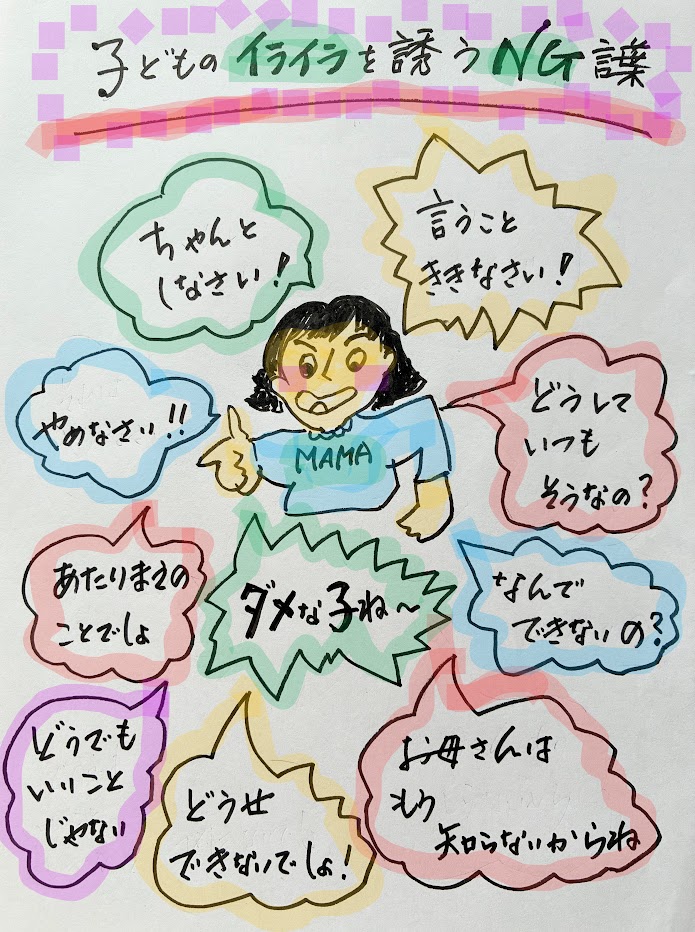 子どものイライラを誘うNG言葉
ちゃんと
しなさい!
言うこと
ききなさい!
やめなさい!!
MAMA
どうして
いつも
そうなの?
あたりまえの
ことでしょ
ダメな子ね〜
なんで
できないの?
どうでも
いいこと
じゃない
どうせ
できないでしょ!
お母さんは
もう
知らないからね